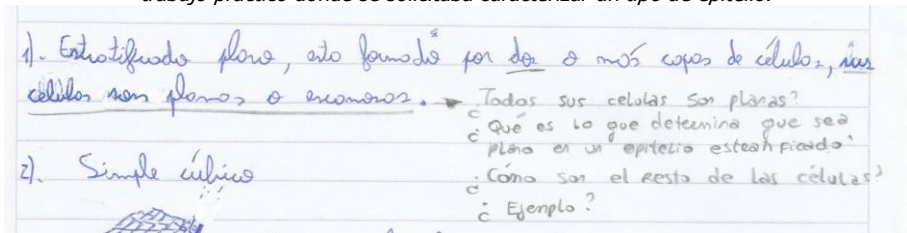 trabajo práctico donde se solicitaba caracterizar un tipo de epitelio.
1). Estratificado plano, esto formado por dos o más capas de células, sus
células son planas o escamosas. → ¿Todas sus celulas son planas?
¿Qué es lo que determina que sea
plano en un epitelio estratificado?
2). Simple cúbico
¿Cómo son el resto de las células?
¿Ejemplo?